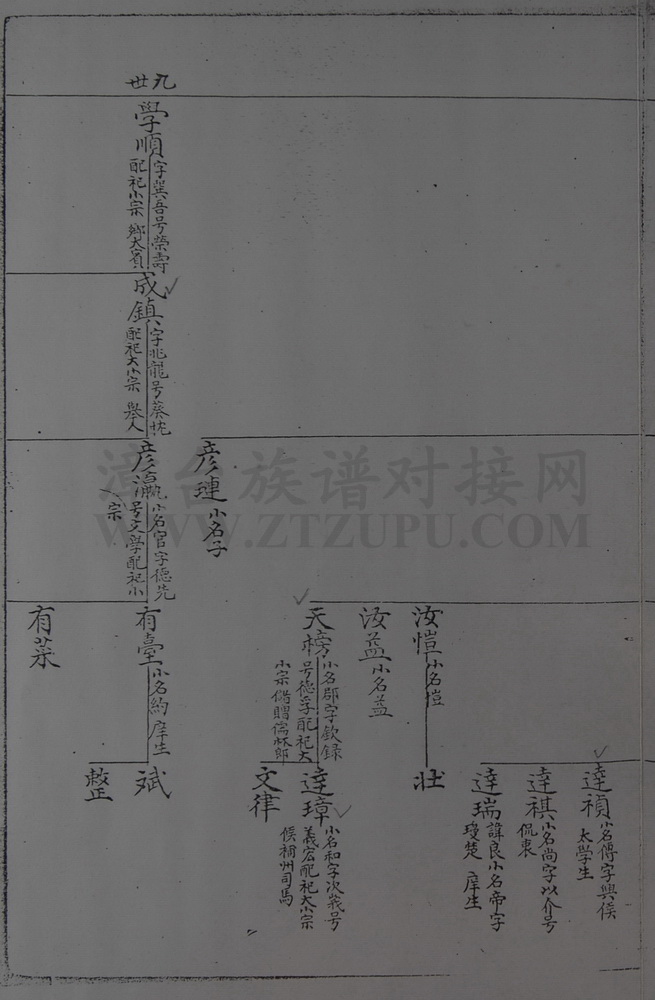 九世
學順
字巽吾号榮壽
配祀小宗 鄉大賓
成鎮
字兆龍号葵忱
配祀大小宗 舉人
彥璉 小名子
彥瀛
小名官字德先
号文學配祀小
宗
汝愷 小名愷
汝益 小名益
天榜
小名郡字欽錄
号德孚配祀大
小宗 儒林郎
有臺 小名約庠生
有菜
達禎
小名傅字興侯
太學生
達祺
小名尚字以介号
侃衷
達瑞
諱良小名帝字
瓊楚 庠生
壯
達璋
小名和字次峩号
義宏配祀大小宗
候補州司馬
文律
斌
整
漳台族谱对接网
WWW.ZTZUPU.COM